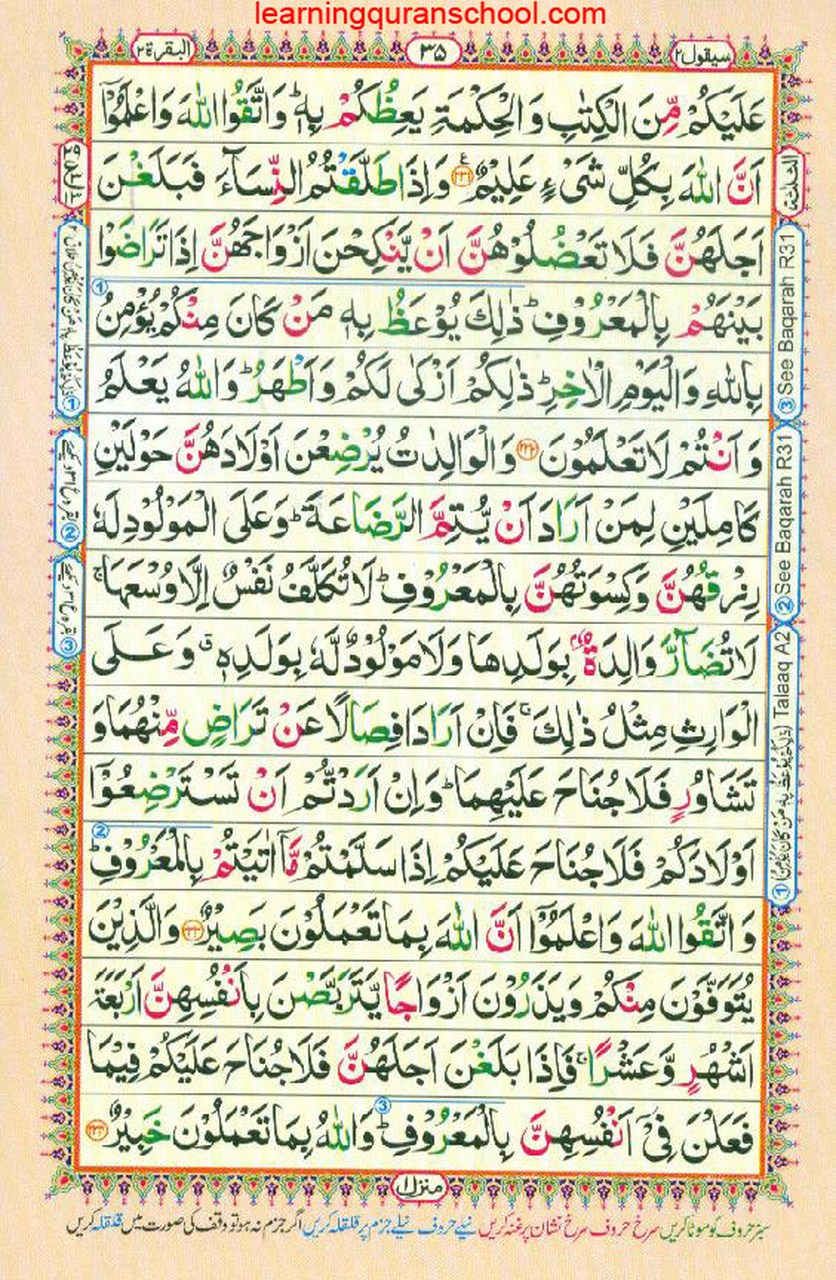 learningquranschool.com
سیقول ۲
۳۵
البقرة ۲
عَلَیْكُمْ مِّنَ الْكِتٰبِ وَ الْحِكْمَةِ یَعِظُكُمْ بِهٖؕ وَ اتَّقُوا اللّٰهَ وَ اعْلَمُوْۤا
اَنَّ اللّٰهَ بِكُلِّ شَیْءٍ عَلِیْمٌ۠ ﴿۲۳۱﴾ وَ اِذَا طَلَّقْتُمُ النِّسَآءَ فَبَلَغْنَ
اَجَلَهُنَّ فَلَا تَعْضُلُوْهُنَّ اَنْ یَّنْكِحْنَ اَزْوَاجَهُنَّ اِذَا تَرَاضَوْا
بَیْنَهُمْ بِالْمَعْرُوْفِؕ ذٰلِكَ یُوْعَظُ بِهٖ مَنْ كَانَ مِنْكُمْ یُؤْمِنُ
بِاللّٰهِ وَ الْیَوْمِ الْاٰخِرِؕ ذٰلِكُمْ اَزْكٰى لَكُمْ وَ اَطْهَرُؕ وَ اللّٰهُ یَعْلَمُ
وَ اَنْتُمْ لَا تَعْلَمُوْنَ ﴿۲۳۲﴾ وَ الْوَالِدٰتُ یُرْضِعْنَ اَوْلَادَهُنَّ حَوْلَیْنِ
كَامِلَیْنِ لِمَنْ اَرَادَ اَنْ یُّتِمَّ الرَّضَاعَةَؕ وَ عَلَى الْمَوْلُوْدِ لَهٗ
رِزْقُهُنَّ وَ كِسْوَتُهُنَّ بِالْمَعْرُوْفِؕ لَا تُكَلَّفُ نَفْسٌ اِلَّا وُسْعَهَاۚ
لَا تُضَآرَّ وَالِدَةٌۢ بِوَلَدِهَا وَ لَا مَوْلُوْدٌ لَّهٗ بِوَلَدِهٖۗ وَ عَلَى
الْوَارِثِ مِثْلُ ذٰلِكَۚ فَاِنْ اَرَادَا فِصَالًا عَنْ تَرَاضٍ مِّنْهُمَا وَ
تَشَاوُرٍ فَلَا جُنَاحَ عَلَیْهِمَاؕ وَ اِنْ اَرَدْتُّمْ اَنْ تَسْتَرْضِعُوْۤا
اَوْلَادَكُمْ فَلَا جُنَاحَ عَلَیْكُمْ اِذَا سَلَّمْتُمْ مَّاۤ اٰتَیْتُمْ بِالْمَعْرُوْفِؕ
وَ اتَّقُوا اللّٰهَ وَ اعْلَمُوْۤا اَنَّ اللّٰهَ بِمَا تَعْمَلُوْنَ بَصِیْرٌ ﴿۲۳۳﴾ وَ الَّذِیْنَ
یُتَوَفَّوْنَ مِنْكُمْ وَ یَذَرُوْنَ اَزْوَاجًا یَّتَرَبَّصْنَ بِاَنْفُسِهِنَّ اَرْبَعَةَ
اَشْهُرٍ وَّ عَشْرًاۚ فَاِذَا بَلَغْنَ اَجَلَهُنَّ فَلَا جُنَاحَ عَلَیْكُمْ فِیْمَا
فَعَلْنَ فِیْۤ اَنْفُسِهِنَّ بِالْمَعْرُوْفِؕ وَ اللّٰهُ بِمَا تَعْمَلُوْنَ خَبِیْرٌ ﴿۲۳۴﴾
الثلثة
③ See Baqarah R31
② See Baqarah R31
① Talaaq A2
منزل ۱
سبز حروف کو موٹا کریں سرخ حروف سرخ نشان پر غنہ کریں نیلے حروف نیلے جزم پر قلقلہ کریں اگر جزم نہ ہو تو وقف کی صورت میں قلقلہ کریں